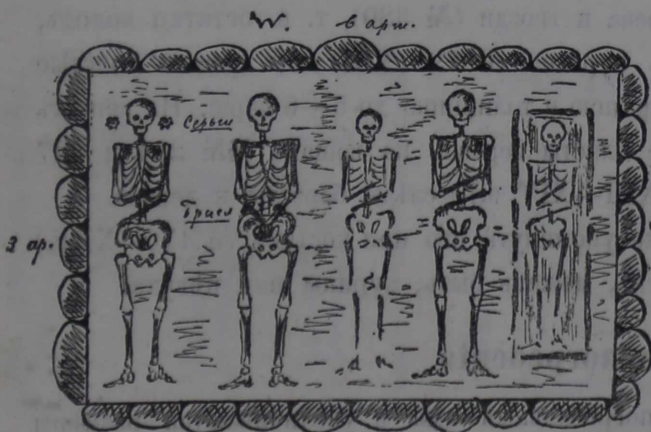 W. 6 арш.
Серьги
Брасл
3 ар.